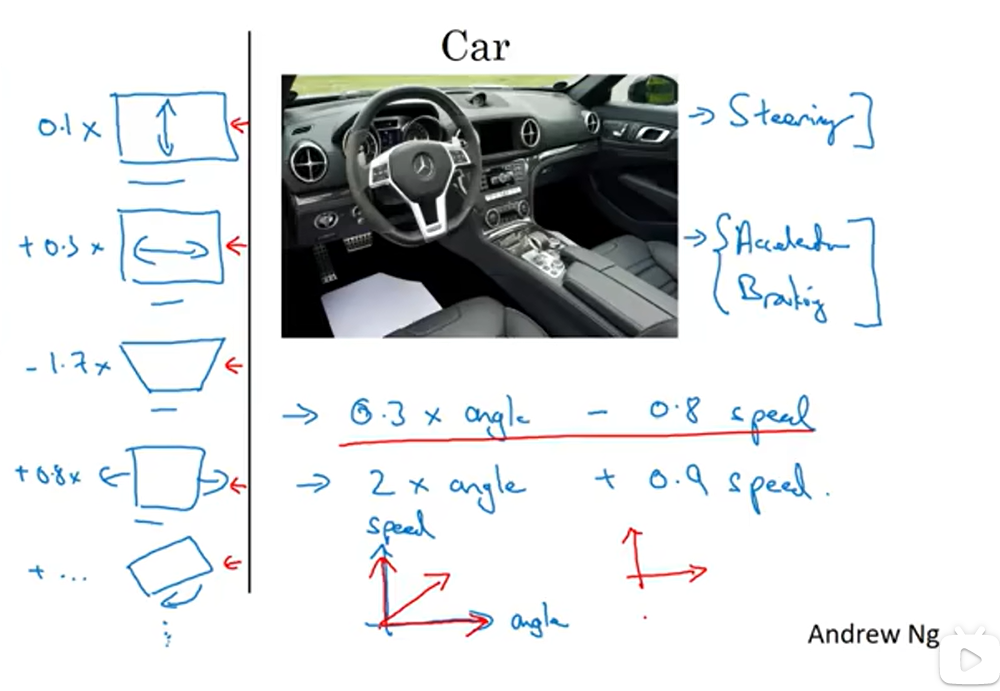 Car
0.1 x
+ 0.3 x
- 1.7 x
+ 0.8x
+ ...
→ Steering]
→ {Acceleration
Braking]
→ 0.3 x angle - 0.8 speed
→ 2 x angle + 0.9 speed.
speed
angle
Andrew Ng